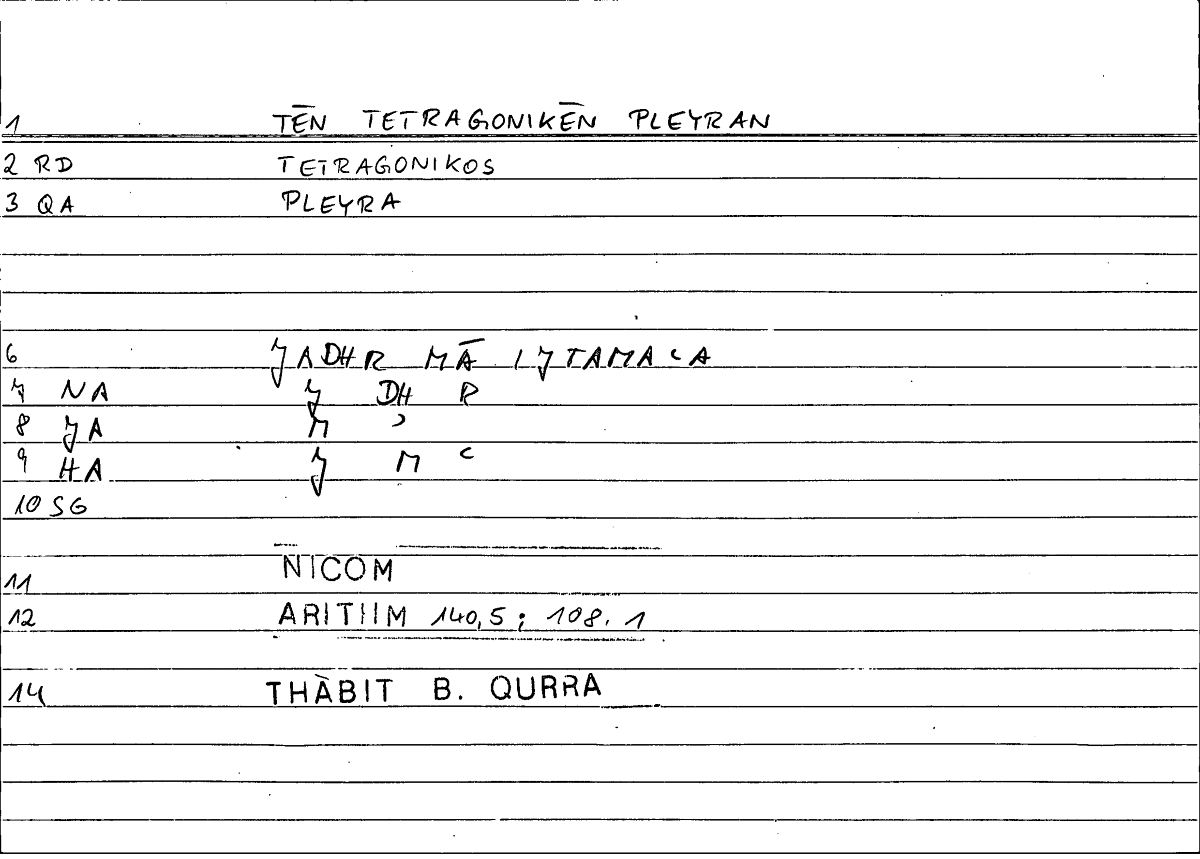 1 TĒN TETRAGONIKĒN PLEYRAN
2 RD TETRAGONIKOS
3 QA PLEYRA
6 JADHR MĀ IJTAMAʿA
7 NA J DH R
8 JA M ʾ
9 HA J M ʿ
10 SG
11 NICOM
12 ARITIIM 140,5; 108.1
14 THÀBIT B. QURRA